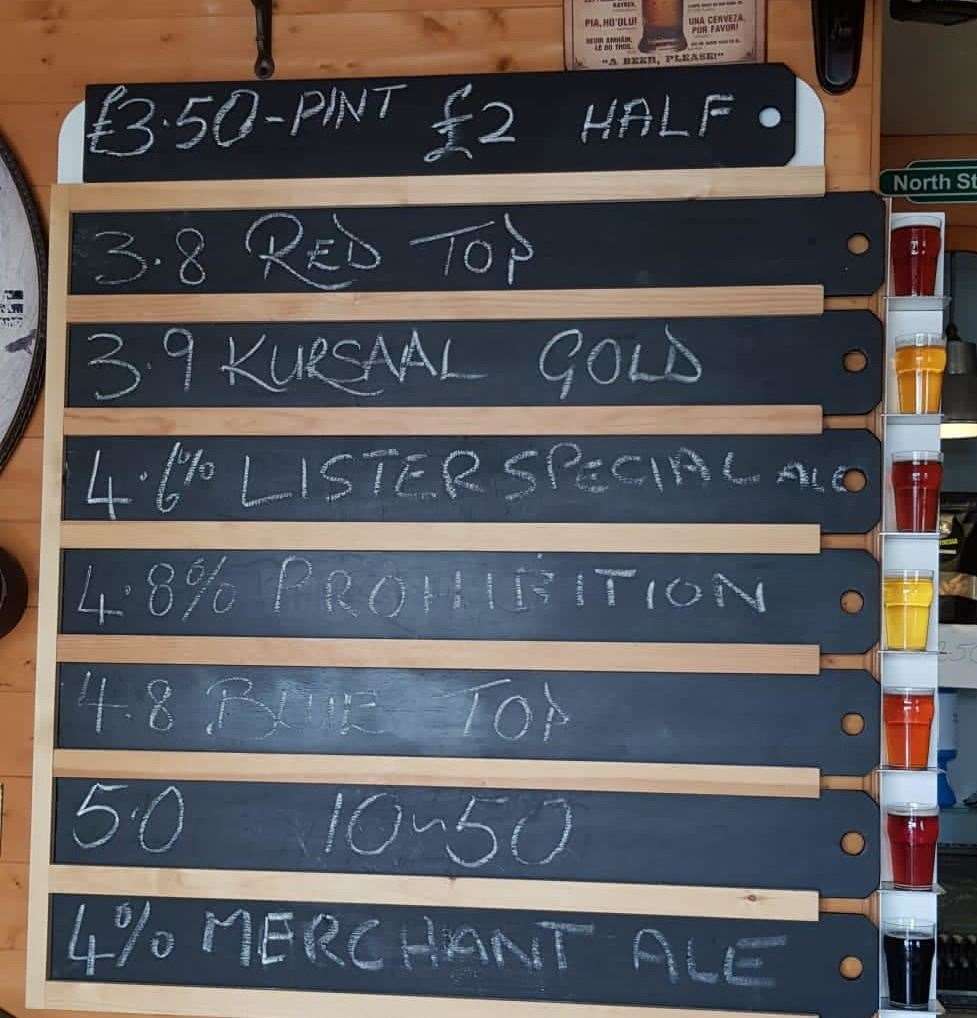 PIA, HO'OLU!
UNA CERVEZA, POR FAVOR!
"A BEER, PLEASE!"
£3.50-PINT £2 HALF
North St
3.8 RED TOP
3.9 KURSAAL GOLD
4.6% LISTER SPECIAL ALE
4.8% PROHIBITION
4.8 BLUE TOP
5.0 10~50
4% MERCHANT ALE